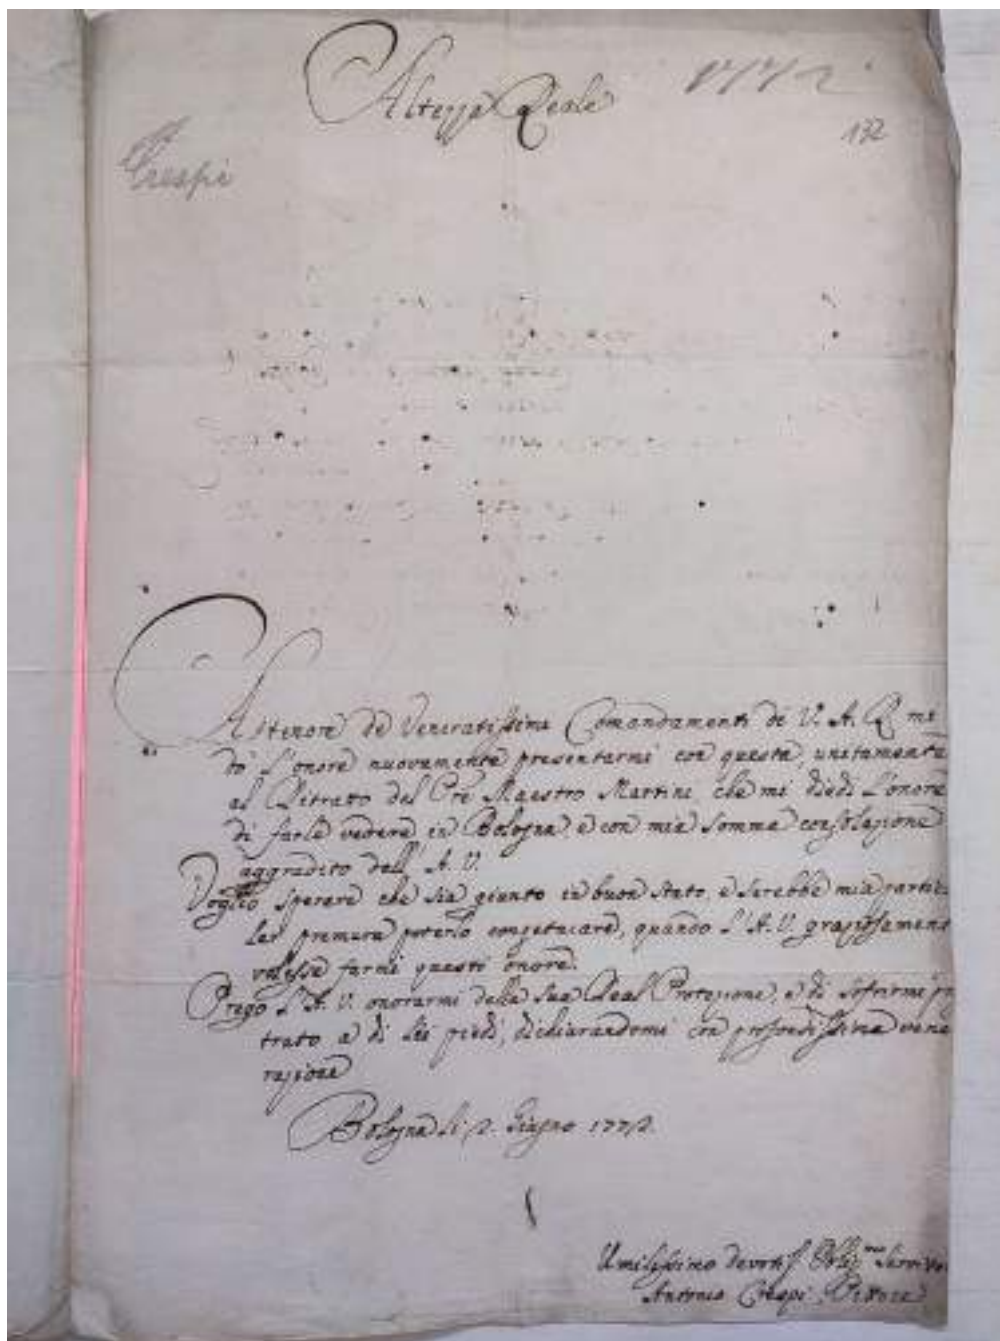 Altezza Reale
1772
132
Crespi
Al tenore de Veneratissimi Comandamenti di V. A. R. mi
dò l'onore nuovamente presentarmi con questa, unitamente
al Ritratto del Pre Maestro Martini che mi diedi l'onore
di farle vedere in Bologna e con mia somma consolazione
aggradito dell' A. V.
Voglio sperare che sia giunto in buon stato, e sarebbe mia partico
lar premura poterlo congetturare, quando l'A. V. graziosamente
volesse farmi questi onore.
Prego l'A. V. onorarmi della sua Real Protezione, e di sofrirmi pros
trato a di Lei piedi, dichiarandomi con profondissima vene
razione
Bologna li 2. Giugno 1772.
Umilissimo devotis. Obblig.mo Servitor
Antonio Crespi Pittore